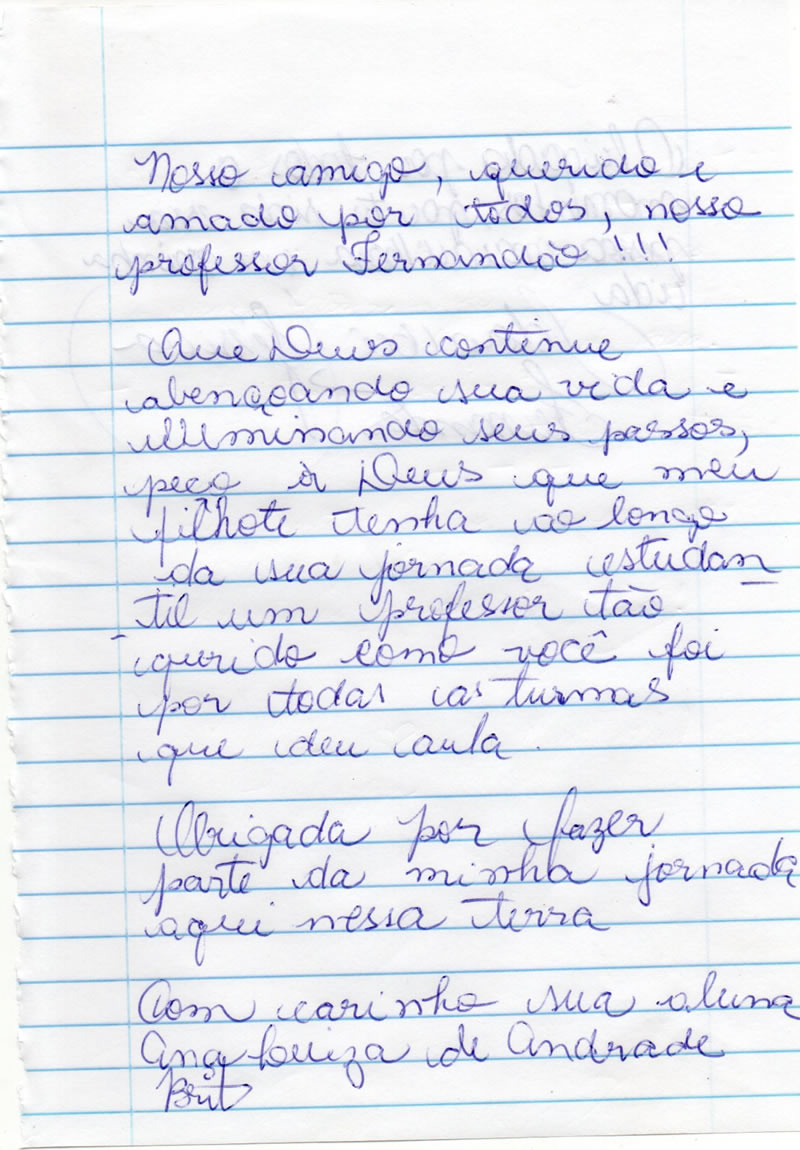 Nosso amigo, querido e
amado por todos, nosso
professor Fernandão!!!
Que Deus continue
abençoando sua vida e
illuminando seus passos,
peço à Deus que meu
filhote tenha ao longo
da sua jornada estudan
til um professor tão
querido como você foi
por todas as turmas
que deu aula.
Obrigada por fazer
parte da minha jornada
aqui nessa terra
Com carinho sua aluna
Ana Luiza de Andrade
Brit